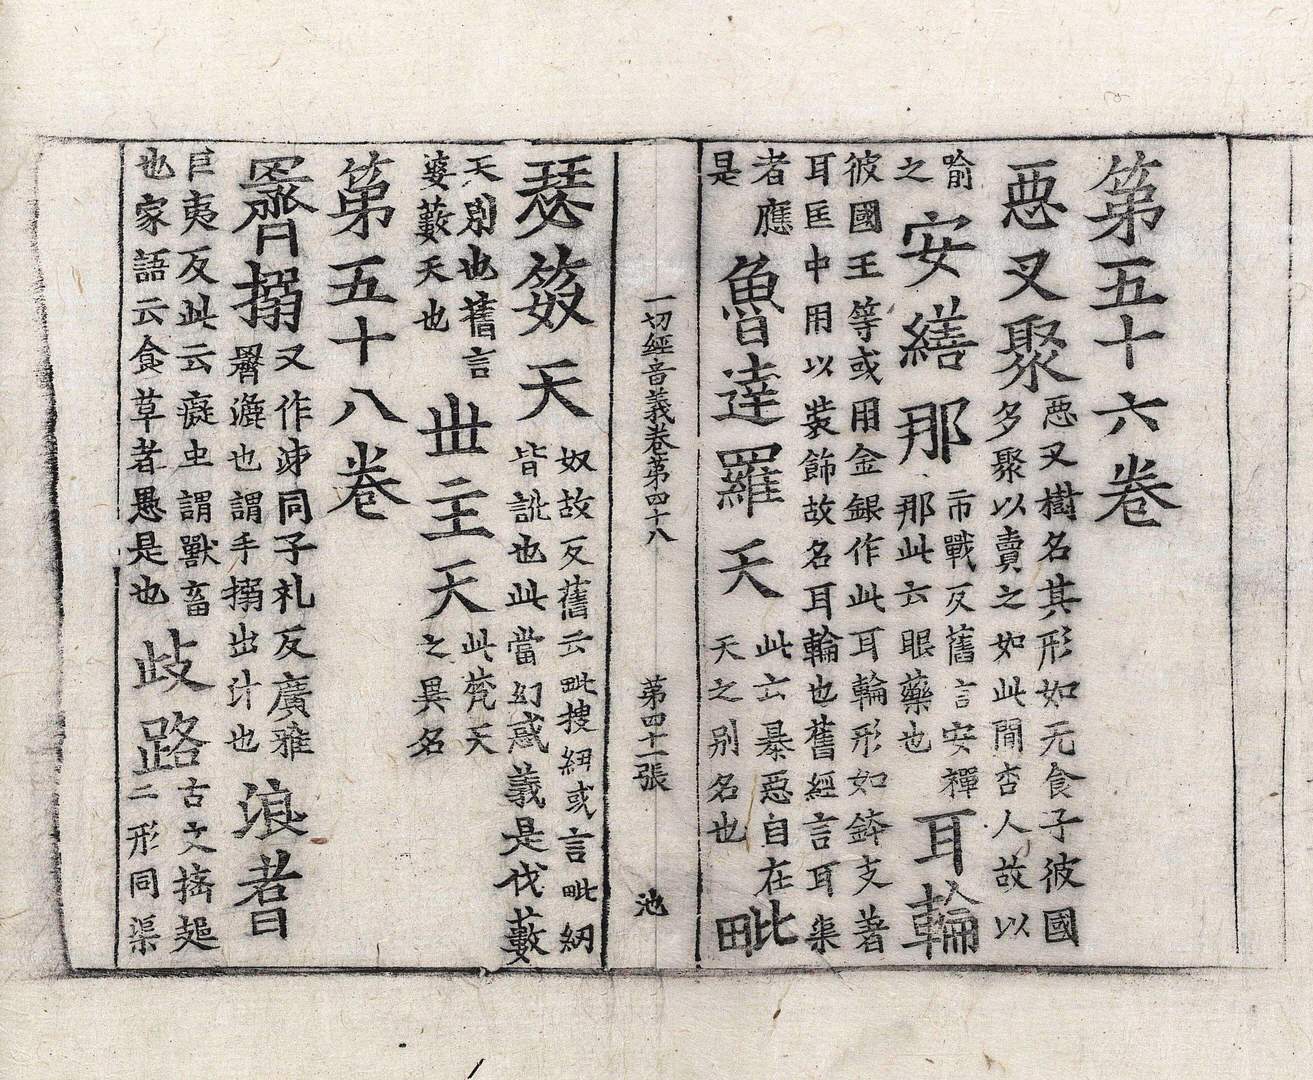 第五十六卷
惡叉聚惡叉樹名其形如无食子彼國
多聚以賣之如此閒杏人故以
喻
之
安繕那市戰反舊言安禪
那此云眼藥也
耳輪
彼國王等或用金銀作此耳輪形如鉢支著
耳匡中用以裝飾故名耳輪也舊經言耳渠
者應
是
魯達羅天此云暴惡自在
天之别名也
毗
一切經音義卷第四十八 第四十一張 池
瑟笯天奴故反舊云毗搜紐或言毗紉
皆訛也此當幻惑義是伐藪
天别也舊言
婆藪天也
世主天此梵天
之異名
第五十八卷
罯搦又作𣲆同子礼反廣雅
漉也謂手搦出汁也
浪耆
巨夷反此云癡虫謂獸畜
也家語云食草者愚是也
歧路古文𢺵
二形同渠